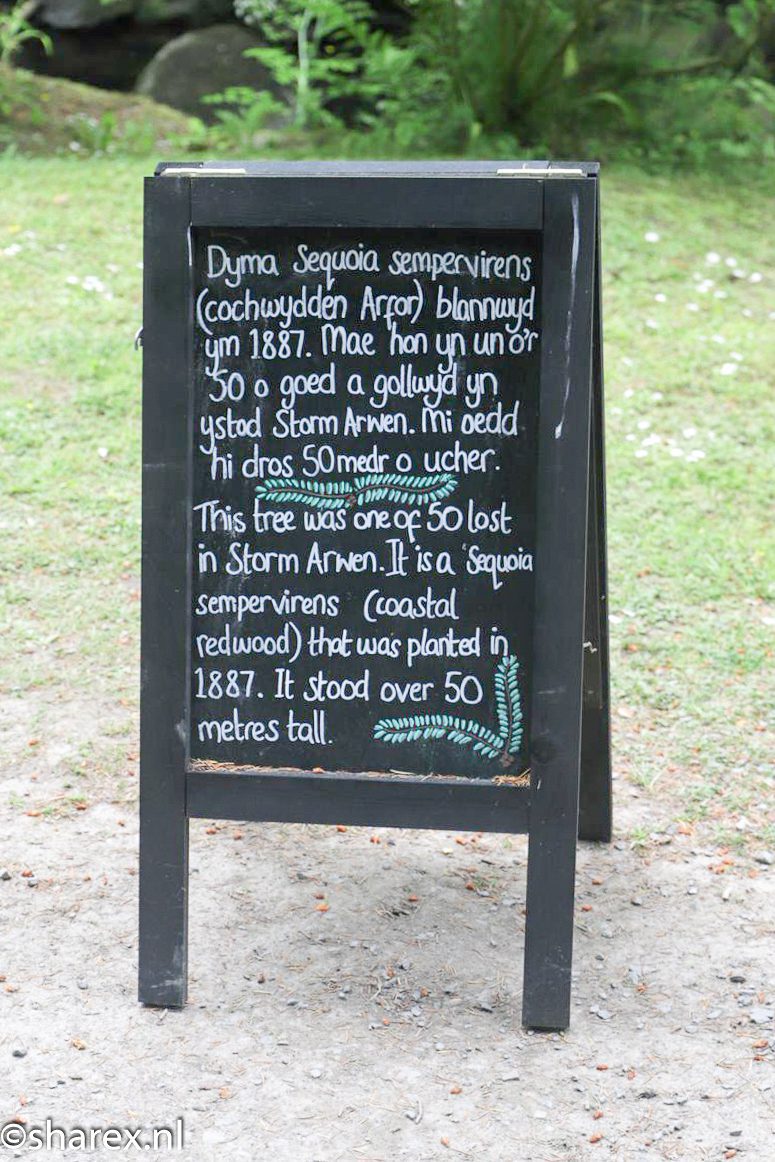 Dyma Sequoia sempervirens
(cochwydden Arfor) blannwyd
ym 1887. Mae hon yn un o'r
50 o goed a gollwyd yn
ystod Storm Arwen. Mi oedd
hi dros 50 medr o ucher.
This tree was one of 50 lost
in Storm Arwen. It is a Sequoia
sempervirens (coastal
redwood) that was planted in
1887. It stood over 50
metres tall.
©sharex.nl